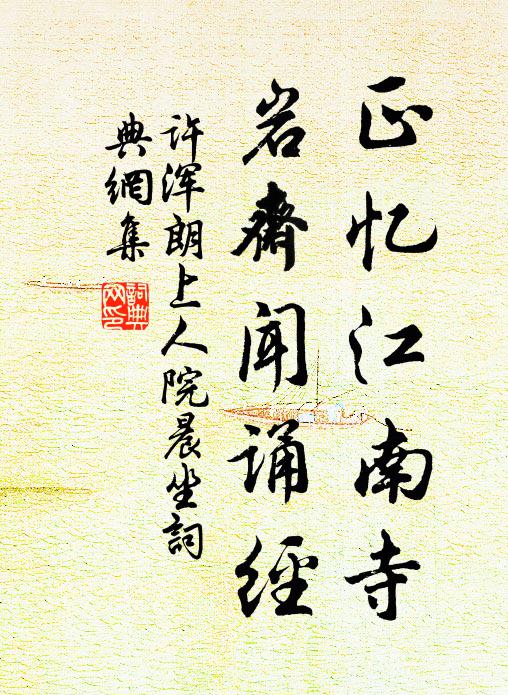 正忆江南寺
岩斋闻诵经
许浑朗上人院晨坐词
典網集
詞典
网印